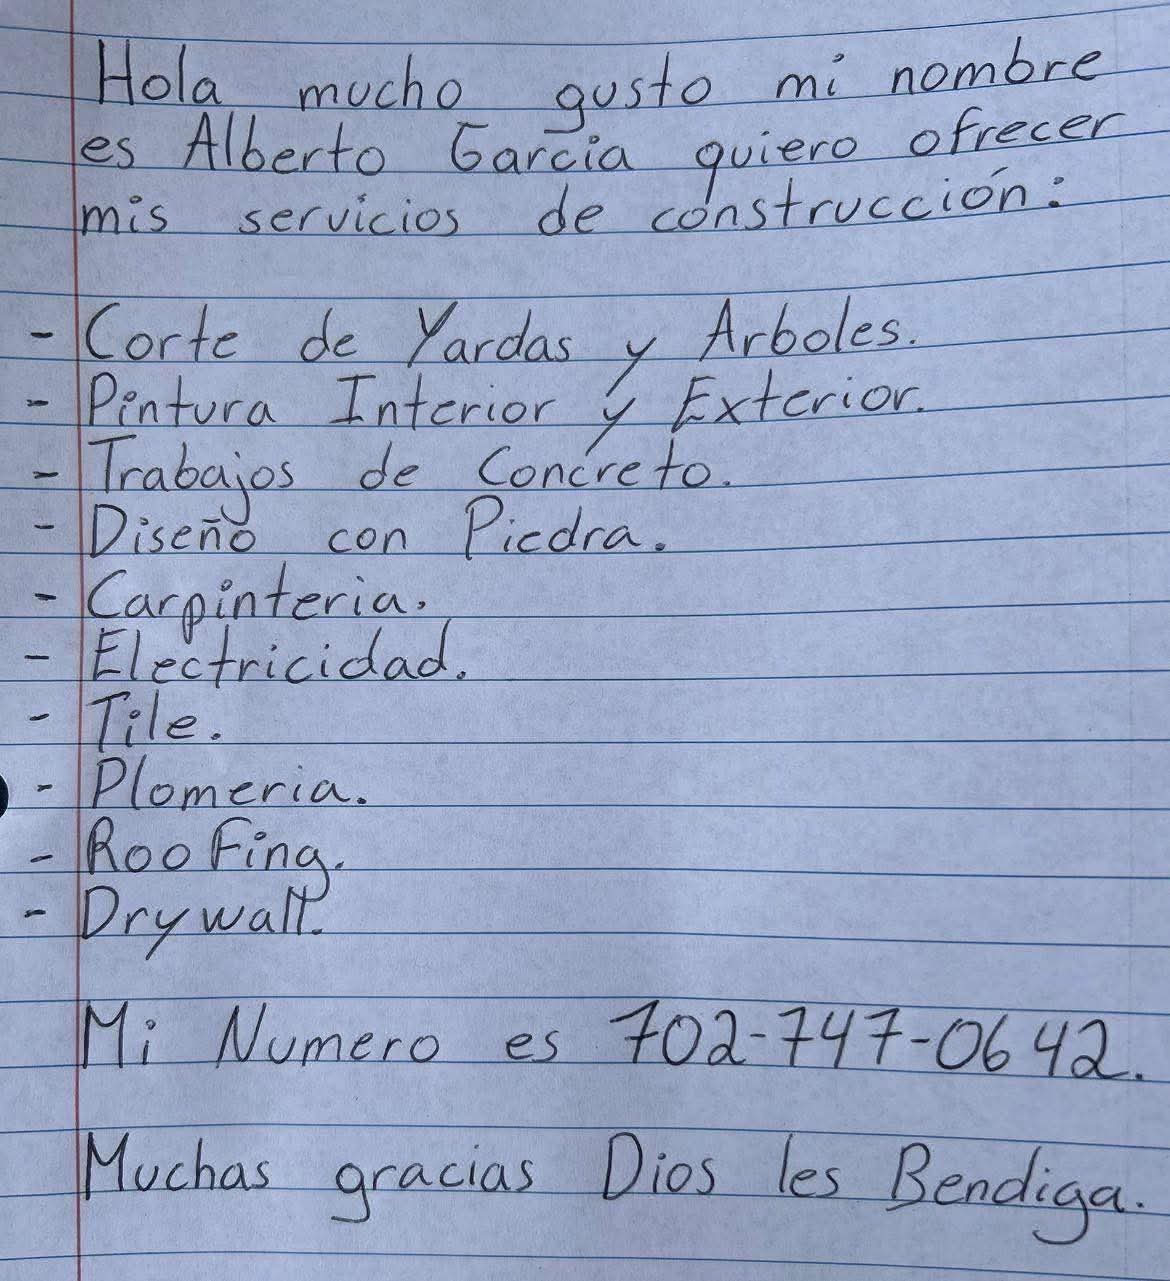 Hola mucho gusto mi nombre
es Alberto Garcia quiero ofrecer
mis servicios de construcción:
- Corte de Yardas y Arboles.
- Pintura Interior y Exterior.
- Trabajos de Concreto.
- Diseño con Piedra.
- Carpinteria.
- Electricidad.
- Tile.
- Plomeria.
- Roofing.
- Drywall.
Mi Numero es 702-747-0642.
Muchas gracias Dios les Bendiga.